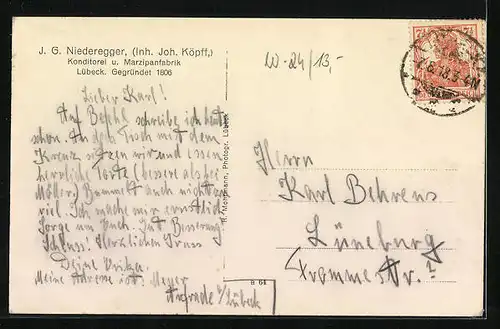 J. G. Niederegger, (Inh. Joh. Köpff,)
Konditorei u. Marzipanfabrik
Lübeck. Gegründet 1806
W-24/13,-
Lieber Karl!
Auf Befehl schreibe ich heut
schon. An dem Tisch mit dem
Kreuz sitzen wir und essen
herrliche Torte (besser als bei
Möller.) Bummelt auch nicht
viel. Ich mache mir ernstlich
Sorge um Euch. Gut Besserung.
Schluss! Herzlichen Gruss
Deine
Meine Adresse ist: Meyer
b/Lübeck
Photogr. Lübeck
Herrn
Karl Behrens
Lüneburg
Frommestr. ?